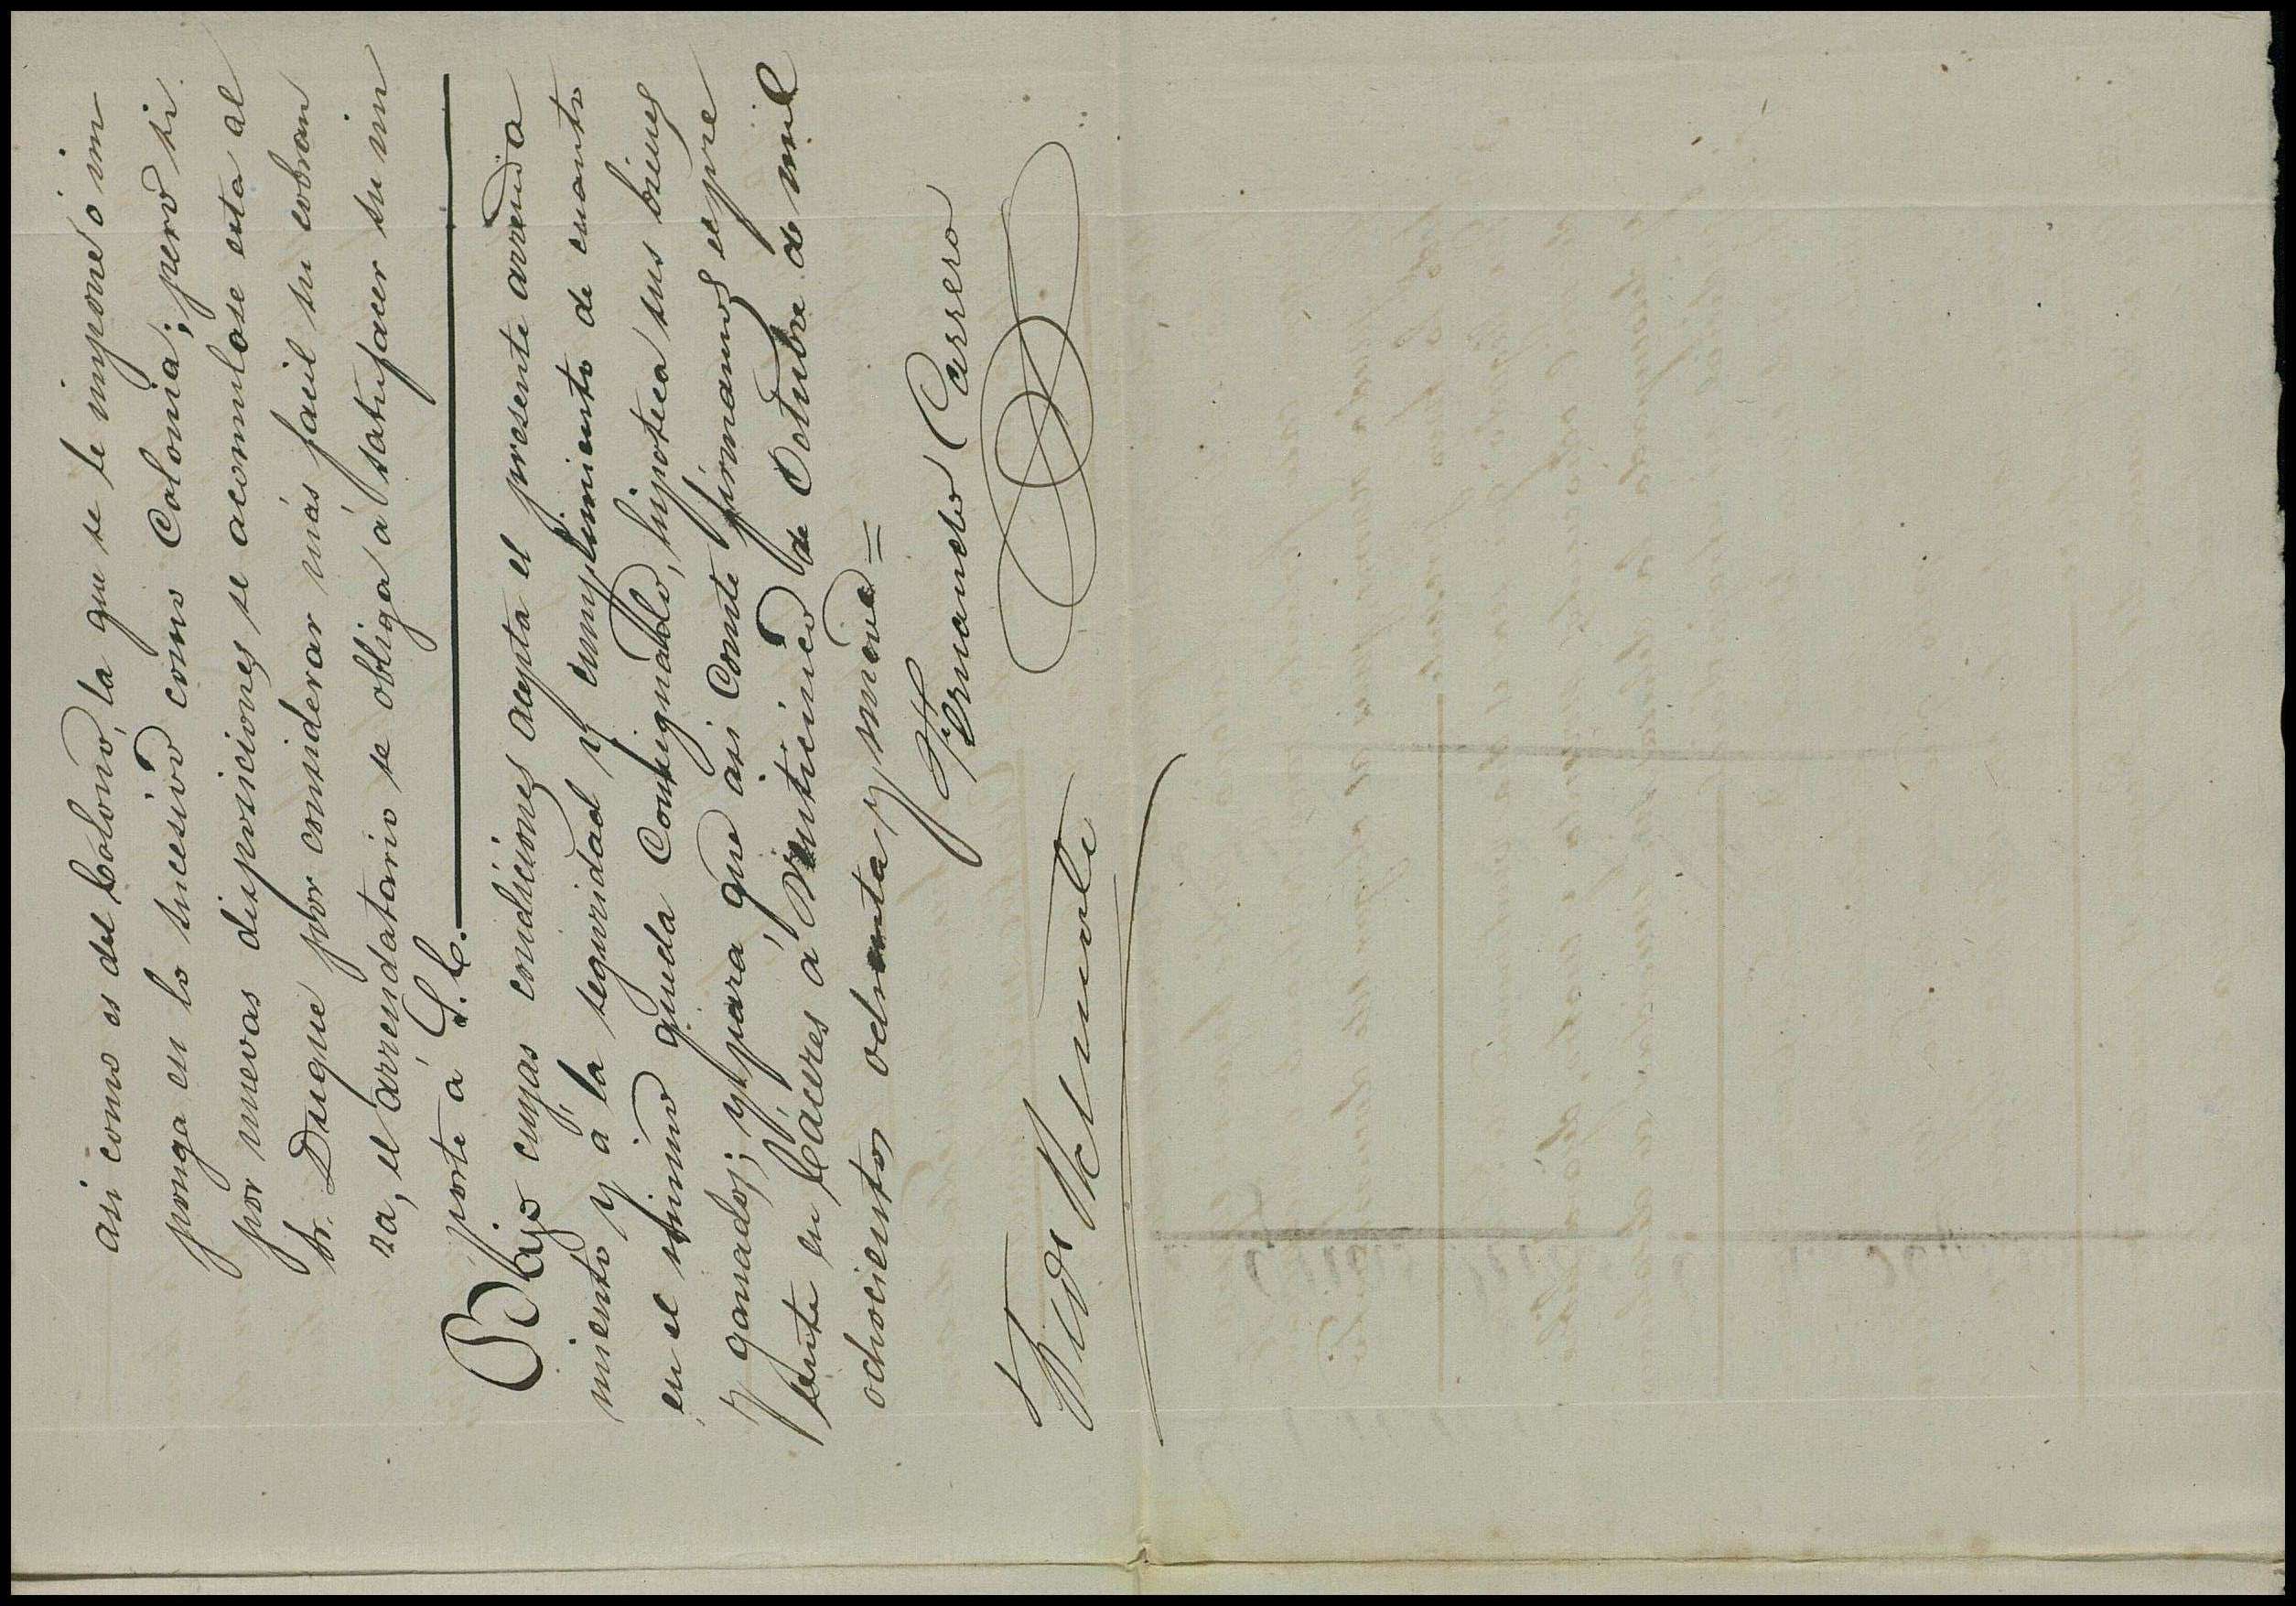 asi como es del Colono, la que se le impone ó im
ponga en lo sucesivo como Colonia; pero si
por nuevas disposiciones se acomulase esta al
Sr. Duque por considerar más facil su cobran
za, el arrendatario se obliga á satisfacer su im
porte á S. E.
Bajo cuyas condiciones acepta el presente arrenda
miento y á la seguridad y cumplimiento de cuanto
en el mismo queda consignado, hipoteca sus bienes
y ganados; y para que asi conste firmamos el pre
sente en Cáceres á veinticinco de Octubre de mil
ochocientos ochenta y nueve =
Fernando Carrero